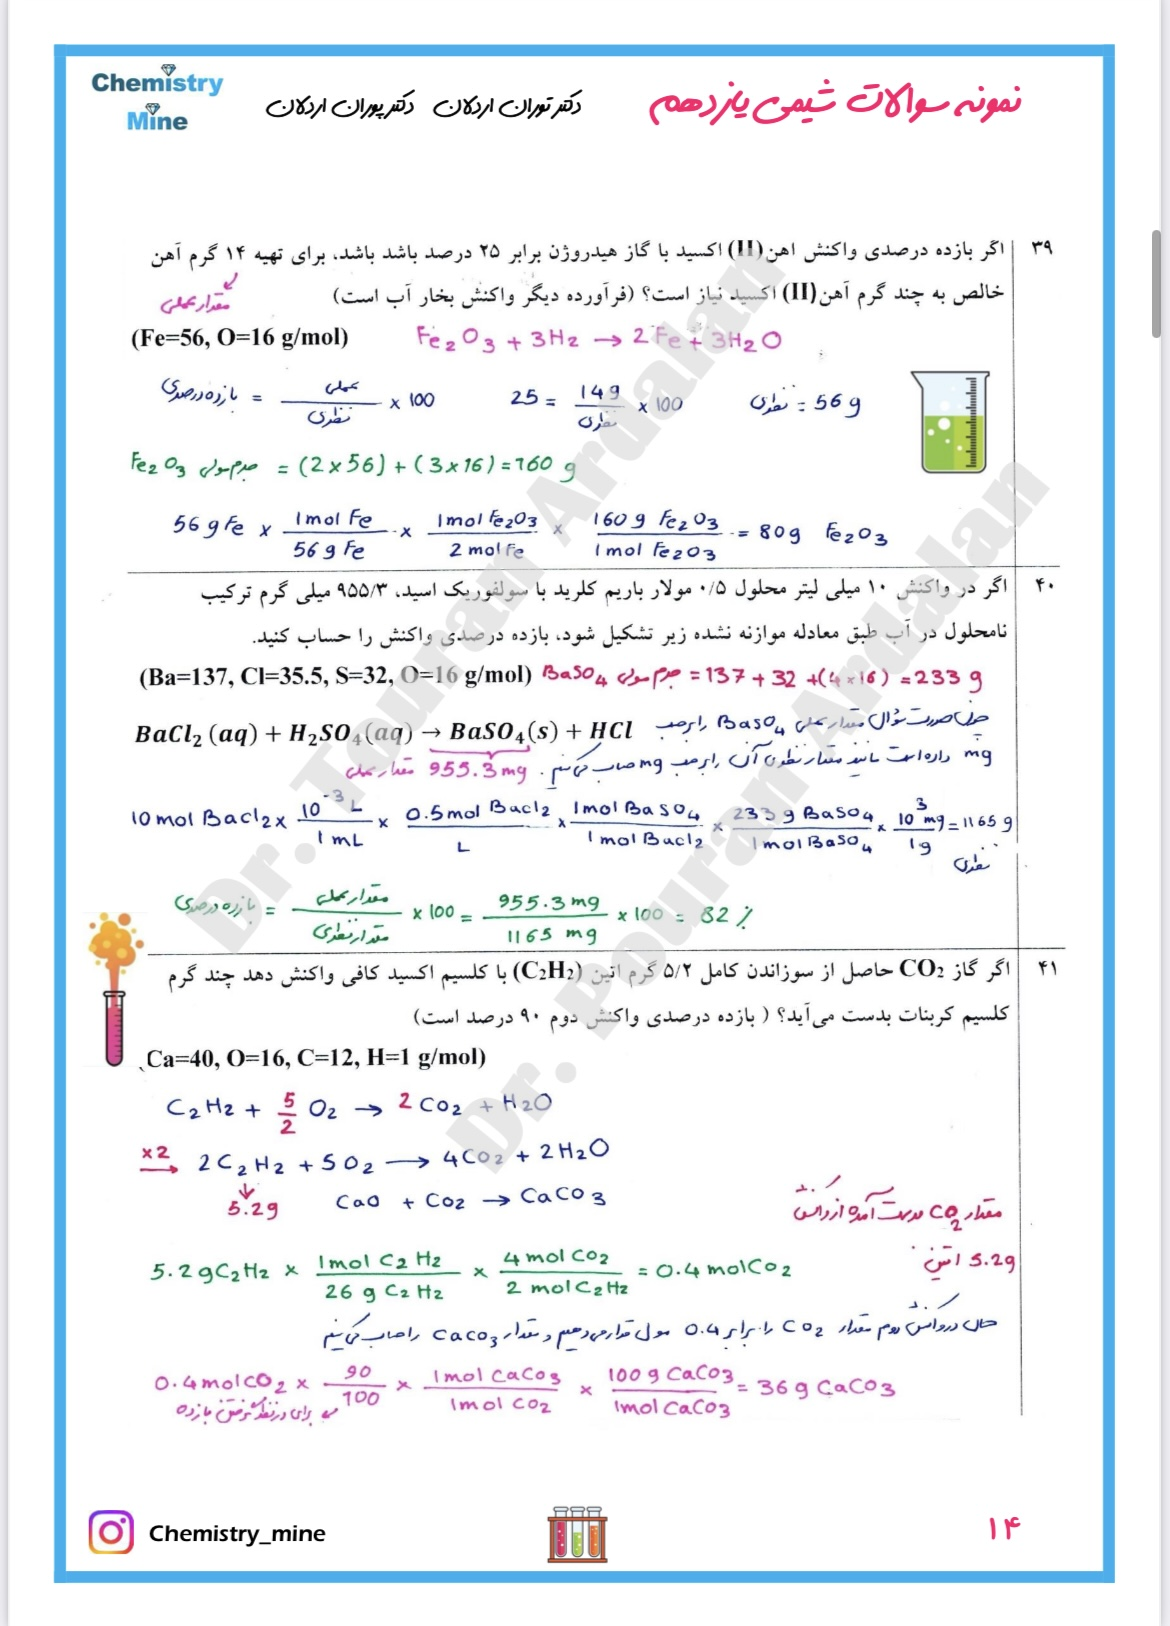 Chemistry Mine
نمونه سوالات شیمی یازدهم دکتر توران اردلان دکتر پوران اردلان
۳۹ اگر بازده درصدی واکنش اهن(II) اکسید با گاز هیدروژن برابر ۲۵ درصد باشد باشد، برای تهیه ۱۴ گرم آهن
خالص به چند گرم آهن(II) اکسید نیاز است؟ (فرآورده دیگر واکنش بخار آب است)
مقدار عملی
(Fe=56, O=16 g/mol) Fe2O3 + 3H2 → 2Fe + 3H2O
بازده درصدی = عملی / نظری × 100 25 = 14g / نظری × 100 نظری = 56 g
Fe2O3 جرم مولی = (2×56) + (3×16) = 160 g
56 g Fe × 1mol Fe / 56 g Fe × 1mol Fe2O3 / 2 mol Fe × 160 g Fe2O3 / 1mol Fe2O3 = 80g Fe2O3
۴۰ اگر در واکنش ۱۰ میلی لیتر محلول ۰/۵ مولار باریم کلرید با سولفوریک اسید، ۹۵۵/۳ میلی گرم ترکیب
نامحلول در آب طبق معادله موازنه نشده زیر تشکیل شود، بازده درصدی واکنش را حساب کنید.
(Ba=137, Cl=35.5, S=32, O=16 g/mol) BaSO4 جرم مولی = 137 + 32 + (4×16) = 233 g
BaCl2 (aq) + H2SO4(aq) → BaSO4(s) + HCl چون صورت سؤال مقدار عملی BaSO4 را برحسب
mg داده است ما نیز مقدار نظری آن را برحسب mg حساب می‌کنیم.
955.3 mg مقدار عملی
10 mol BaCl2 × 10-3 L / 1 mL × 0.5mol BaCl2 / L × 1mol BaSO4 / 1mol BaCl2 × 233 g BaSO4 / 1mol BaSO4 × 103 mg / 1g = 1165 g
نظری
بازده درصدی = مقدار عملی / مقدار نظری × 100 = 955.3 mg / 1165 mg × 100 = 82 %
۴۱ اگر گاز CO2 حاصل از سوزاندن کامل ۵/۲ گرم اتین (C2H2) با کلسیم اکسید کافی واکنش دهد چند گرم
کلسیم کربنات بدست می‌آید؟ ( بازده درصدی واکنش دوم ۹۰ درصد است)
Ca=40, O=16, C=12, H=1 g/mol)
C2H2 + 5/2 O2 → 2CO2 + H2O
×2 → 2C2H2 + 5O2 → 4CO2 + 2H2O
5.2g CaO + CO2 → CaCO3
مقدار CO2 بدست آمده از واکنش
5.2g اتین
5.2gC2H2 × 1mol C2H2 / 26 g C2H2 × 4molCO2 / 2 molC2H2 = 0.4molCO2
حال در واکنش دوم مقدار CO2 را برابر 0.4 مول قرار می‌دهیم و مقدار CaCO3 را حساب می‌کنیم
0.4molCO2 × 90 / 100 × 1molCaCO3 / 1molCO2 × 100 g CaCO3 / 1molCaCO3 = 36 g CaCO3
برای در نظر گرفتن بازده
Chemistry_mine
۱۴
Dr. Touran Ardalan
Dr. Pouran Ardalan